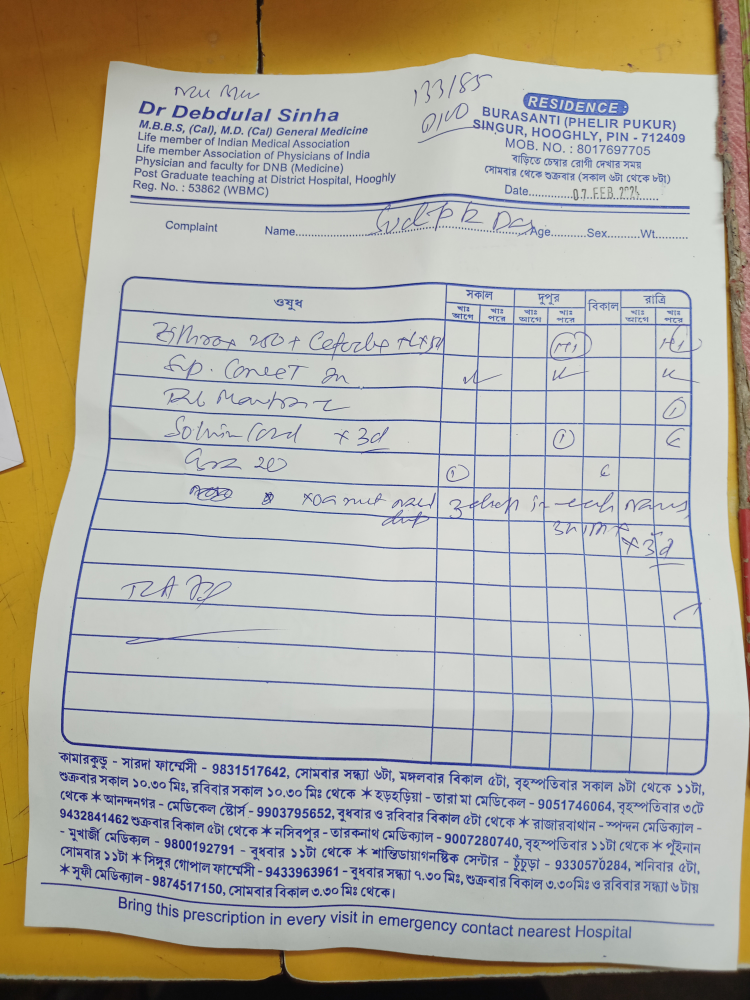 133/85
Dr Debdulal Sinha
M.B.B.S, (Cal), M.D. (Cal) General Medicine
Life member of Indian Medical Association
Life member Association of Physicians of India
Physician and faculty for DNB (Medicine)
Post Graduate teaching at District Hospital, Hooghly
Reg. No. : 53862 (WBMC)
RESIDENCE :
BURASANTI (PHELIR PUKUR)
SINGUR, HOOGHLY, PIN - 712409
MOB. NO. : 8017697705
বাড়িতে চেম্বার রোগী দেখার সময়
সোমবার থেকে শুক্রবার (সকাল ৬টা থেকে ৮টা)
Date 07 FEB
Complaint Name Das Age Sex Wt.
ওষুধ সকাল দুপুর বিকাল রাত্রি
খাঃ আগে খাঃ পরে খাঃ আগে খাঃ পরে খাঃ আগে খাঃ পরে
200 +
Syp.
1
Solvin Cold × 3d 1
20 1
3 drop in each
× 3d
কামারকুন্ডু - সারদা ফার্মেসী - 9831517642, সোমবার সন্ধ্যা ৬টা, মঙ্গলবার বিকাল ৫টা, বৃহস্পতিবার সকাল ৯টা থেকে ১১টা,
শুক্রবার সকাল ১০.৩০ মিঃ, রবিবার সকাল ১০.৩০ মিঃ থেকে ✶ হড়হড়িয়া - তারা মা মেডিকেল - 9051746064, বৃহস্পতিবার ৩টে
থেকে ✶ আনন্দনগর - মেডিকেল ষ্টোর্স - 9903795652, বুধবার ও রবিবার বিকাল ৫টা থেকে ✶ রাজারবাথান - স্পন্দন মেডিক্যাল -
9432841462 শুক্রবার বিকাল ৫টা থেকে ✶ নসিবপুর - তারকনাথ মেডিক্যাল - 9007280740, বৃহস্পতিবার ১১টা থেকে ✶ পুঁইনান
- মুখার্জী মেডিক্যল - 9800192791 - বুধবার ১১টা থেকে ✶ শান্তিডায়াগনষ্টিক সেন্টার - চুঁচুড়া - 9330570284, শনিবার ৫টা,
সোমবার ১১টা ✶ সিঙ্গুর গোপাল ফার্মেসী - 9433963961 - বুধবার সন্ধ্যা ৭.৩০ মিঃ, শুক্রবার বিকাল ৩.৩০মিঃ ও রবিবার সন্ধ্যা ৬টায়
✶ সূফী মেডিক্যাল - 9874517150, সোমবার বিকাল ৩.৩০ মিঃ থেকে।
Bring this prescription in every visit in emergency contact nearest Hospital